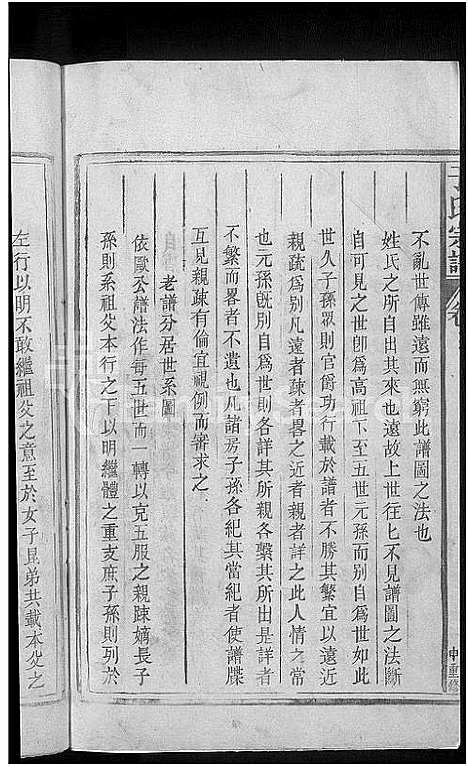 不亂世傳雖遠而無窮此譜圖之法也
姓氏之所自出其來也遠故上世徃匕不見譜圖之法斷
自可見之世卽為高祖下至五世元孫而別自為世如此
世久子孫眾則官爵功行載於譜者不勝其繁宜以遠近
親疏為別凡遠者疎者畧之近者親者詳之此人情之常
也元孫旣別自為世則各詳其所親各繫其所出是詳者
不繁而畧者不遺也凡諸房子孫各紀其當紀者使譜牒
互見親疎有倫宜視例而審求之
老譜分居世系圖
依歐公譜法作每五世而一轉以克五服之親踈嫡長子
孫則系祖父本行之下以明繼體之重支庶子孫則列於
左行以明不敢繼祖父之意至於女子昆弟共載本父之
氏宗譜
重修